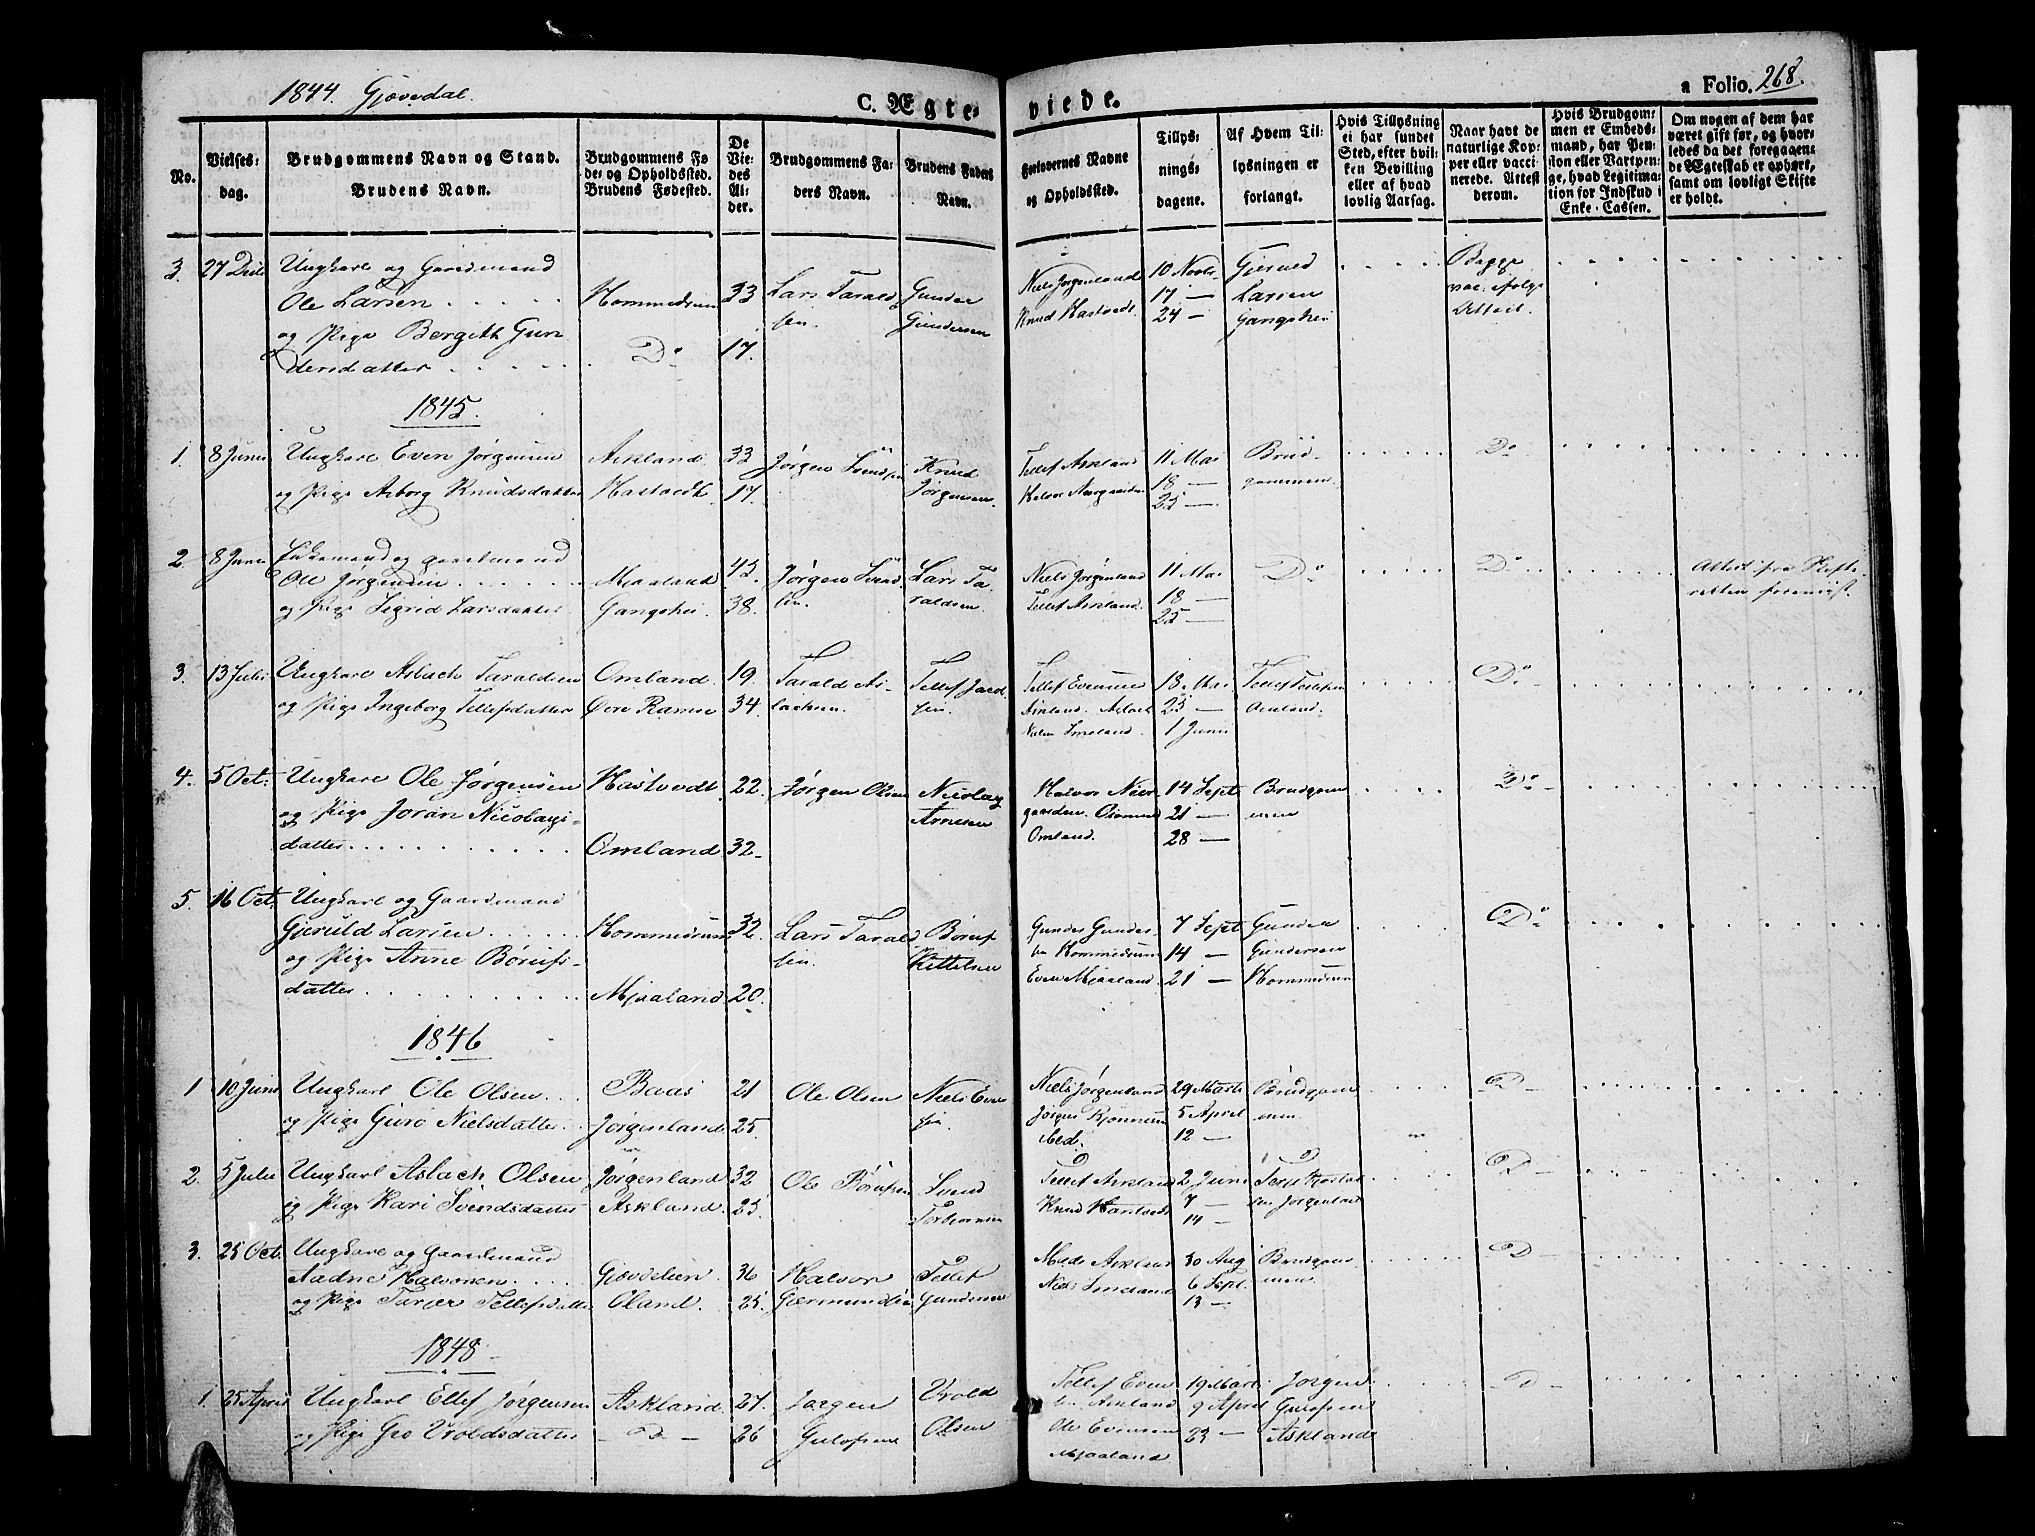 1844. Gjøvedal.
C. Ægte-
viede.
a Folio. 268.
No.
Vielses-
dag.
Brudgommens Navn og Stand.
Brudens Navn.
Brudgommens Fø
de- og Opholdssted.
Brudens Fødested.
De
Vie-
des
Al-
der.
Brudgommens Fa-
ders Navn.
Brudens Faders
Navn.
Forlovernes Navne
og Opholdssted.
Tillys-
nings-
dagene.
Af Hvem Til-
lysningen er
forlangt.
Hvis Tillysning
ei har fundet
Sted, efter hvil-
ken Bevilling
eller af hvad
lovlig Aarsag.
Naar havt de
naturlige Kop-
per eller vacci-
nerede. Attest
derom.
Hvis Brudgom-
men er Embeds-
mand, har Pen-
sion eller Vartpen-
ge, hvad Legitima-
tion for Indskud i
Enke-Cassen.
Om nogen af dem har
været gift før, og hvor-
ledes da det foregaaen-
de Ægteskab er ophørt,
samt om lovligt Skifte
er holdt.
3. 27 Ungkarl og Gaardmand
Ole Larsen
og Pige Bergith Gun
dersdatter
Hommedrum
Do
33
17.
Lars Tarald
sen.
Gunder
Gundersen
Niels Jørgenland
Knud Hastvedt
10 Novbr
17 —
24 —
Gjeruld
Larsen
Gangshei
Begge
vac. ifølge
Attest.
1845.
1. 8 Juni Ungkarl Even Jørgensen
og Pige Asborg Knudsdatter
Askland
Hastvedt.
33
17.
Jørgen Svendsen
Knud
Jørgensen.
Tellef Askland
11 Mai
18 —
25 —
Brud-
gommen.
Do
2. 8 Juni Enkemand og gaardmand
Ole Jørgensen
og Pige Sigrid Larsdatter
Mjaaland
Gangshei.
43.
38.
Jørgen Svend
sen.
Lars Ta-
raldsen.
Niels Jørgenland
Tellef Askland.
11 Mai
18 —
25 —
Do
Do
Attest fra Skifte-
retten foreviist.
3. 13 Juli Ungkarl Aslach Taraldsen
og Pige Ingeborg Tellefsdatter
Omland.
Øvre Ramse
19.
34.
Tarald As-
lachsen.
Tellef
sen.
Tellef Evensen
Askland. Aslach
Smeland.
18. Mai
25 —
1 Juni
Tellef Tellefsen
Do
4. 5 Oct. Ungkarl Ole Jørgensen
og Pige Joran Nicolays-
datter
Hastvedt.
Omland
22.
32.
Jørgen Olsen
Nicolay
Arnesen
Halvor
gaarden.
Omland.
14 Sept
21 —
28 —
Brudgom
men
Do
5. 16 Oct. Ungkarl og Gaardmand
Gjeruld Larsen
og Pige Anne Børufs-
datter
Hommedrum
Mjaaland
32.
20.
Lars Tarald
sen.
Børuf
Kittelsen
Gunder Gunder
sen Hommedrum
Even Mjaaland.
7 Sept
14 —
21 —
Gunder
Gundersen
Hommedrum
Do
1846
1 10 Juni Ungkarl Ole Olsen
og Pige Guro Nielsdatter
Baas
Jørgenland
21
25.
Ole Olsen
Niels Even
sen.
Niels Jørgenland
12 —
29 Marts
5 April
Brudgom
men.
D
2. 5 Juli Ungkarl Aslach Olsen
og Pige Kari Svendsdatter
Jørgenland
Askland.
32
25.
Ole Børufsen
Svend
Torbjørnsen
Tellef Askland
Knud Hastvedt
2 Juni
7 —
14 —
Jørgenland
D
3. 25 Oct. Ungkarl og Gaardmand
Aadne Halvorsen
og Pige Tarjer Tellefsdatter
Gjøvdelien.
Oland.
36
25.
Halvor
Germundsen
Tellef
Gundersen
Mads Askland
Niels Smeland
30 Aug
6 Sept
13 —
Brudgom
men.
D
1848
1. 25 April Ungkarl Ellef Jørgensen
og Pige Gro Vroldsdatter
Askland.
— D —
27.
26
Jørgen
Gulofsen
Vrold
Olsen
Tellef Even
sen Askland
Ole Evensen
Mjaaland
19 Marts
9 April
23 —
Jørgen
Gulofsen
Askland
D